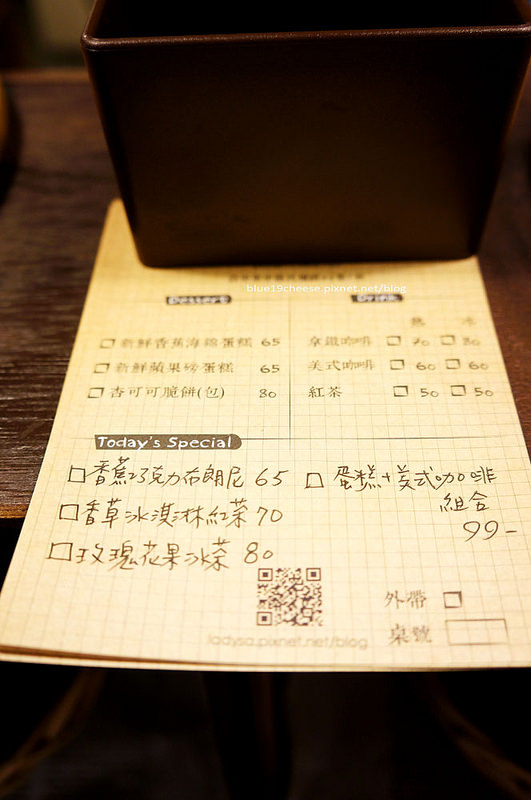 blue19cheese.pixnet.net/blog
Dessert
Drink
熱 冰
新鮮香蕉海綿蛋糕 65
拿鐵咖啡 □ 70 □ 80
新鮮蘋果磅蛋糕 65
美式咖啡 □ 60 □ 60
杏可可脆餅(包) 80
紅茶 □ 50 □ 50
Today's Special
□香蕉巧克力布朗尼 65
□ 蛋糕+美式咖啡
組合
99-
□香草冰淇淋紅茶 70
□玫瑰花果冰茶 80
外帶 □
桌號
ladysa.pixnet.net/blog